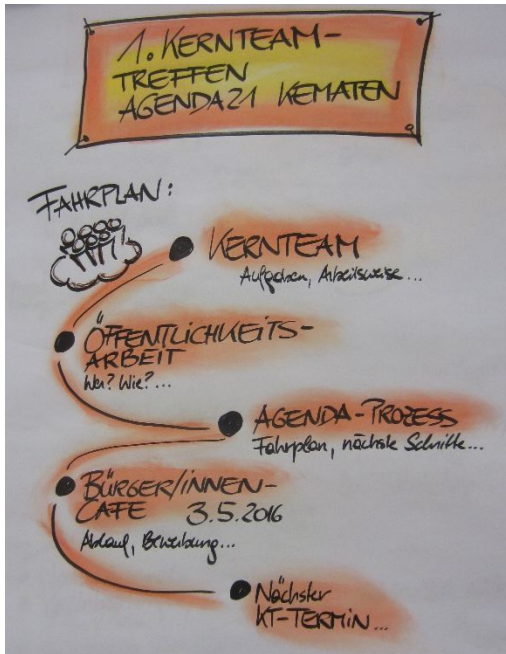 1. KERNTEAM-
TREFFEN
AGENDA21 KEMATEN
FAHRPLAN:
KERNTEAM
Aufgaben, Arbeitsweise...
ÖFFENTLICHKEITS-
ARBEIT
Wer? Wie?...
AGENDA-PROZESS
Fahrplan, nächste Schritte...
BÜRGER/INNEN-
CAFE 3.5.2016
Ablauf, Bewerbung...
Nächster
KT-TERMIN...